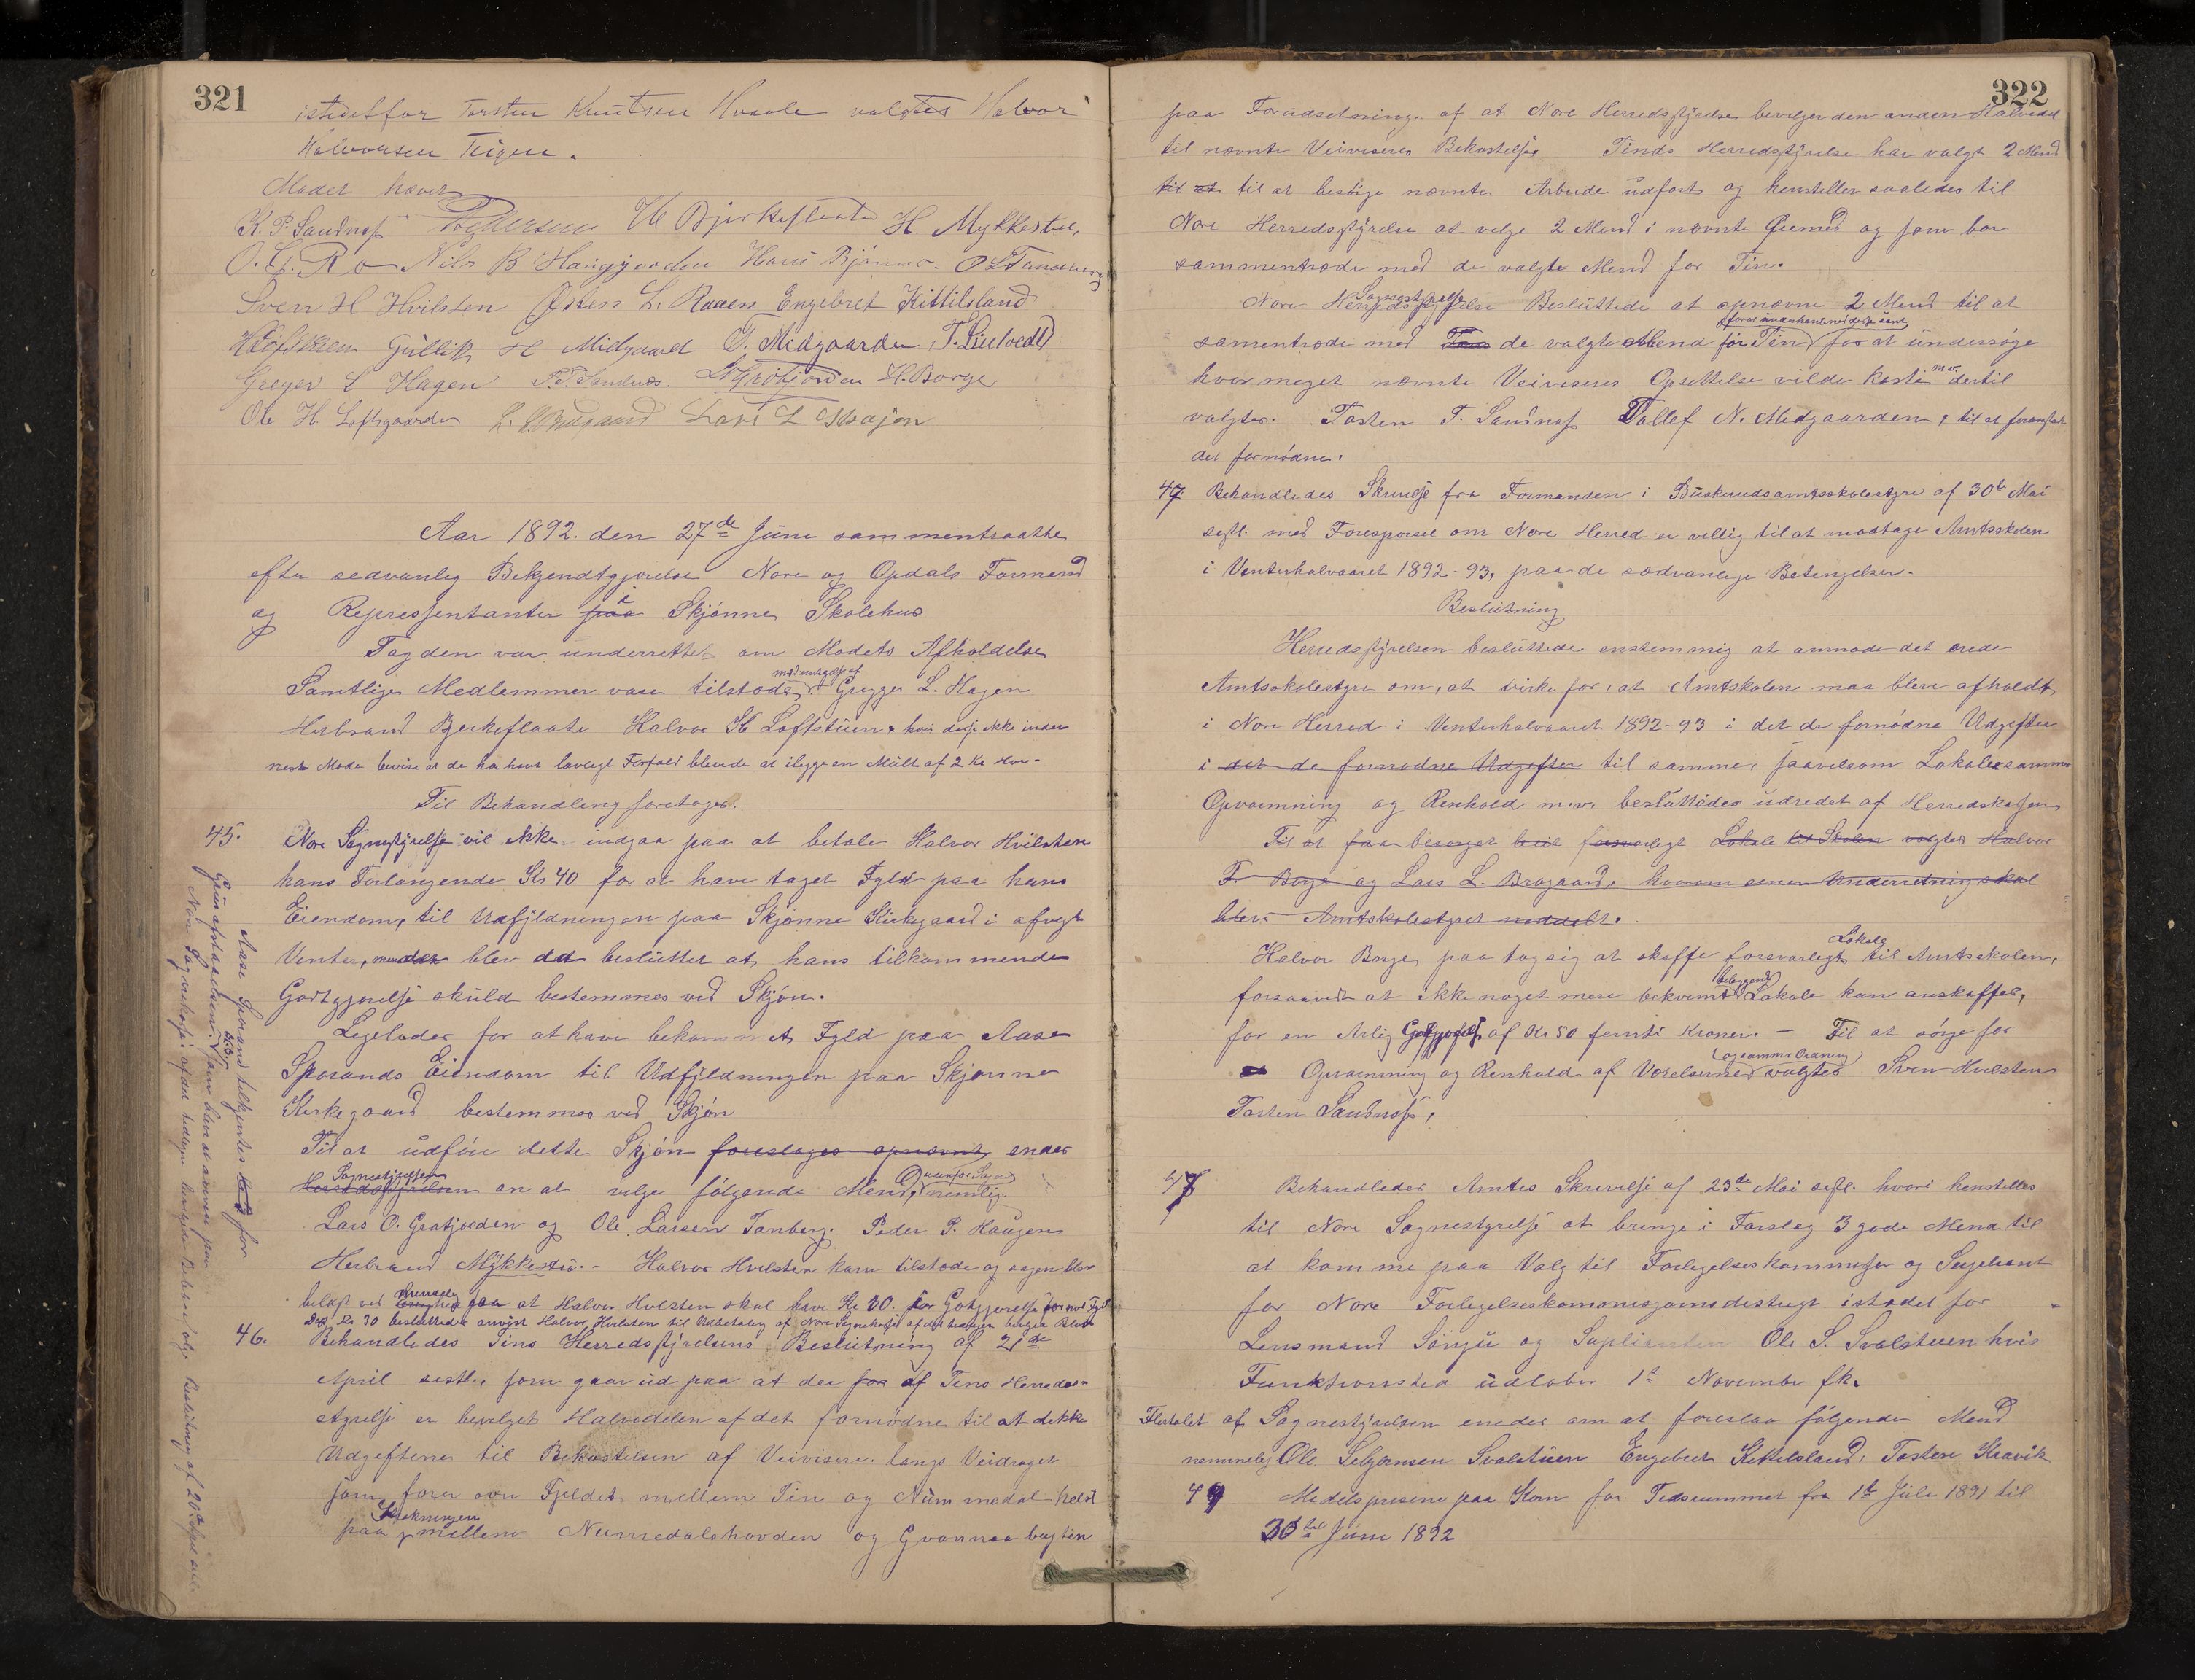 321
istedetfor Torsten Knutsen Hvaale valgtes Halvor
Halvorsen Teigen.
Mødet hævet
K. P. Sandnæs H Bjerkeflaate H Mykkestue,
O. G. Ro Nils B Haugjorden Hans Bjönno. O L Tandberg
Sven H Hvilsten Østen L. Raaen Engebret Kittilsland
Gullik H Midgaard O. Midgaarden, T. Lindvedt
Greger L Hagen T. T. Sandnes. H. Borge
Ole H. Loftsgaarden Lars L
Aar 1892. den 27de Juni sammentraatte
efter sedvanleg Bekjendtgjørelse Nore og Opdals Formend
og Represjentanter paa i Skjönne Skolehus
Fogden var underrettet om Mødets Afholdelse
Samtlige Medlemmer vare tilstede med undtagelse af Gregger L. Hagen
Herbrand Bjerkeflaate Halvor H Loftstuen hvis disse ikke inden
neste Møde bevise at de har havt lovlegt Forfald blevde at ilegge en Mült af 2 Kr Hver-
Til Behandling foretoges:
45. Nore Sognestyrelse vil ikke indgaa paa at betale Halvor Hvilsten
hans Forlangende Kr 40 for at have taget Fyld paa hans
Eiendom, til Udfyldningen paa Skjønne Kirkegaard i afvigte
Venter, men det blev da besluttet at hans tilkommende
Godtgjørelse skuld bestemmes ved Skjön.
Ligeledes for at have bekommet Fyld paa Aase
Sporands Eiendom til Udfyldningen paa Skjønne
Kirkegaard bestemmes ved Skjön
Til at udföre dette Skjön foreslages opnævnt enedes
Herredstyrelsen Sognestyrelsen om at velge følgende Mend, nemlig
Lars O. Gratjorden og Ole Larsen Tanberg. Peder P. Haugen
Herbrand Mykkestu. - Halvor Hvilsten kam tilstede og sagen blev
belagt ved mindelighed paa at Halvor Hvilsten skal have Kr 30. for Godtgjørelse for
Disse Kr 30 besluttedes anvist Halvor Hvilsten til Udbetaling af Nore Sognekasse
46. Behandledes Tins Herredsstyrelsens Beslutning af 21de
April sestl., som gaar ud paa at der paa af Tins Herreds-
styrelse er bevilget Halvedelen af det fornødne til at dekke
Udgefterne til Bekostelsen af Veivisere langs Veidraget
som fører over Fjeldet mellem Tin og Nummedal helst
paa Strekningen mellem Numedalshovden og Gvannaabugten
Aase Sporand tilkjentes for
Nore Sognekasse
322
paa Forudsetning af at Nore Herredsstyrelse bevilger den anden Halvdel
til nævnte Veiviseres Bekostelse Tinds Herredsstyrelse har valgt 2 Mend
til at til at besörge nævnte Arbeide udført og henstiller saaledes til
Nore Herredsstyrelse at velge 2 Mend i nævnte Øiemed og som bør
sammentræde med de valgte Mend for Tin.
Nore Herredsstyrelse Sognestyrelse Besluttede at opnævne 2 Mend til at
samentræde med de valgte Mend for Tin for at undersöge
hvor meget nævnte Veiviseres Opsettelse vilde koste dertil
valgtes. Tosten T. Sandnæs Tollef N. Midgaarden, til at foranstalte
det fornödne.
47. Behandledes Skrivelse fra Formanden i Buskerudsamtsskolestyre af 30te Mai
sestl. med Forespørsel om Nore Herred er villig til at modtage Amtsskolen
i Venterhalvaaret 1892-93, paa de sædvanlige Betingelser.
Beslutning
Herredsstyrelsen besluttede enstemmig at anmode det ærede
Amtsskolestyre om, at virke for, at Amtskolen maa bleve afholdt
i Nore Herred i Venterhalvaaret 1892-93 i det de fornödne Udgefter
i det de fornødne Udgefter til samme, saavelsom Lokale samme
Opvarmning og Renhold m.v. besluttedes udredet af Herredskassen
Til at faa besørget et forsvarlegt Lokale til Skolen valgtes Halvor
T. Borge og Lars L. Bragaard, hvorom senere Underretning skal
bleve Amtskolestyret meddelt.
Halvor Borge paa tog sig at skaffe forsvarlegt Lokale til Amtsskolen,
forsaavidt at ikke noget mere bekvemt beleggende Lokale kan anskaffes,
for en Arlig Godtgjørelse af Kr 50 femti Kroner. - Til at sörge for
Opvarmning og Renhold af Værelserne og samme Ordning valgtes Sven Hvilsten
Tosten Sandnæs,
48 Behandledes Amtes Skrivelse af 23de Mai sestl. hvori henstilles
til Nore Sognestyrelse at bringe i Forslag 3 gode Mend til
at komme paa Valg til Forlegelseskommissær og Supleant
for Nore Forlegelseskommisjonsdistrigt istedet for
Lensmand Söngu og Suplianten Ole S. Svalstuen hvis
Funktionstid udløber 1te November fk.
Flertalet af Sognestyrelsen enedes om at foreslaa følgende Mend
nemmelig Ole Sebjørnsen Svalstuen Engebret Kettilsland, Tosten Kravik
49 Medelsprisene paa Korn for Tidsrummet fra 1te Juli 1891 til
30te Juni 1892